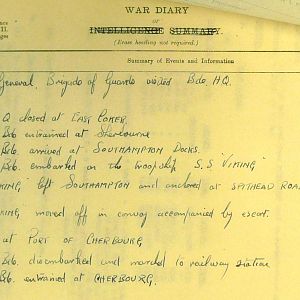 WAR DIARY
OF
INTELLIGENCE SUMMARY.
(Erase heading not required.)
Summary of Events and Information
General, Brigade of Guards visited Bde. H.Q.
Q closed at EAST COKER.
Bde. entrained at Sherbourne
Bde. arrived at SOUTHAMPTON DOCKS.
Bde. embarked on the troopship S.S VIKING
KING, left SOUTHAMPTON and anchored at SPITHEAD ROA
KING moved off in convoy accompanied by escort.
at PORT OF CHERBOURG
Bde. disembarked and marched to railway station
Bde. entrained at CHERBOURG.